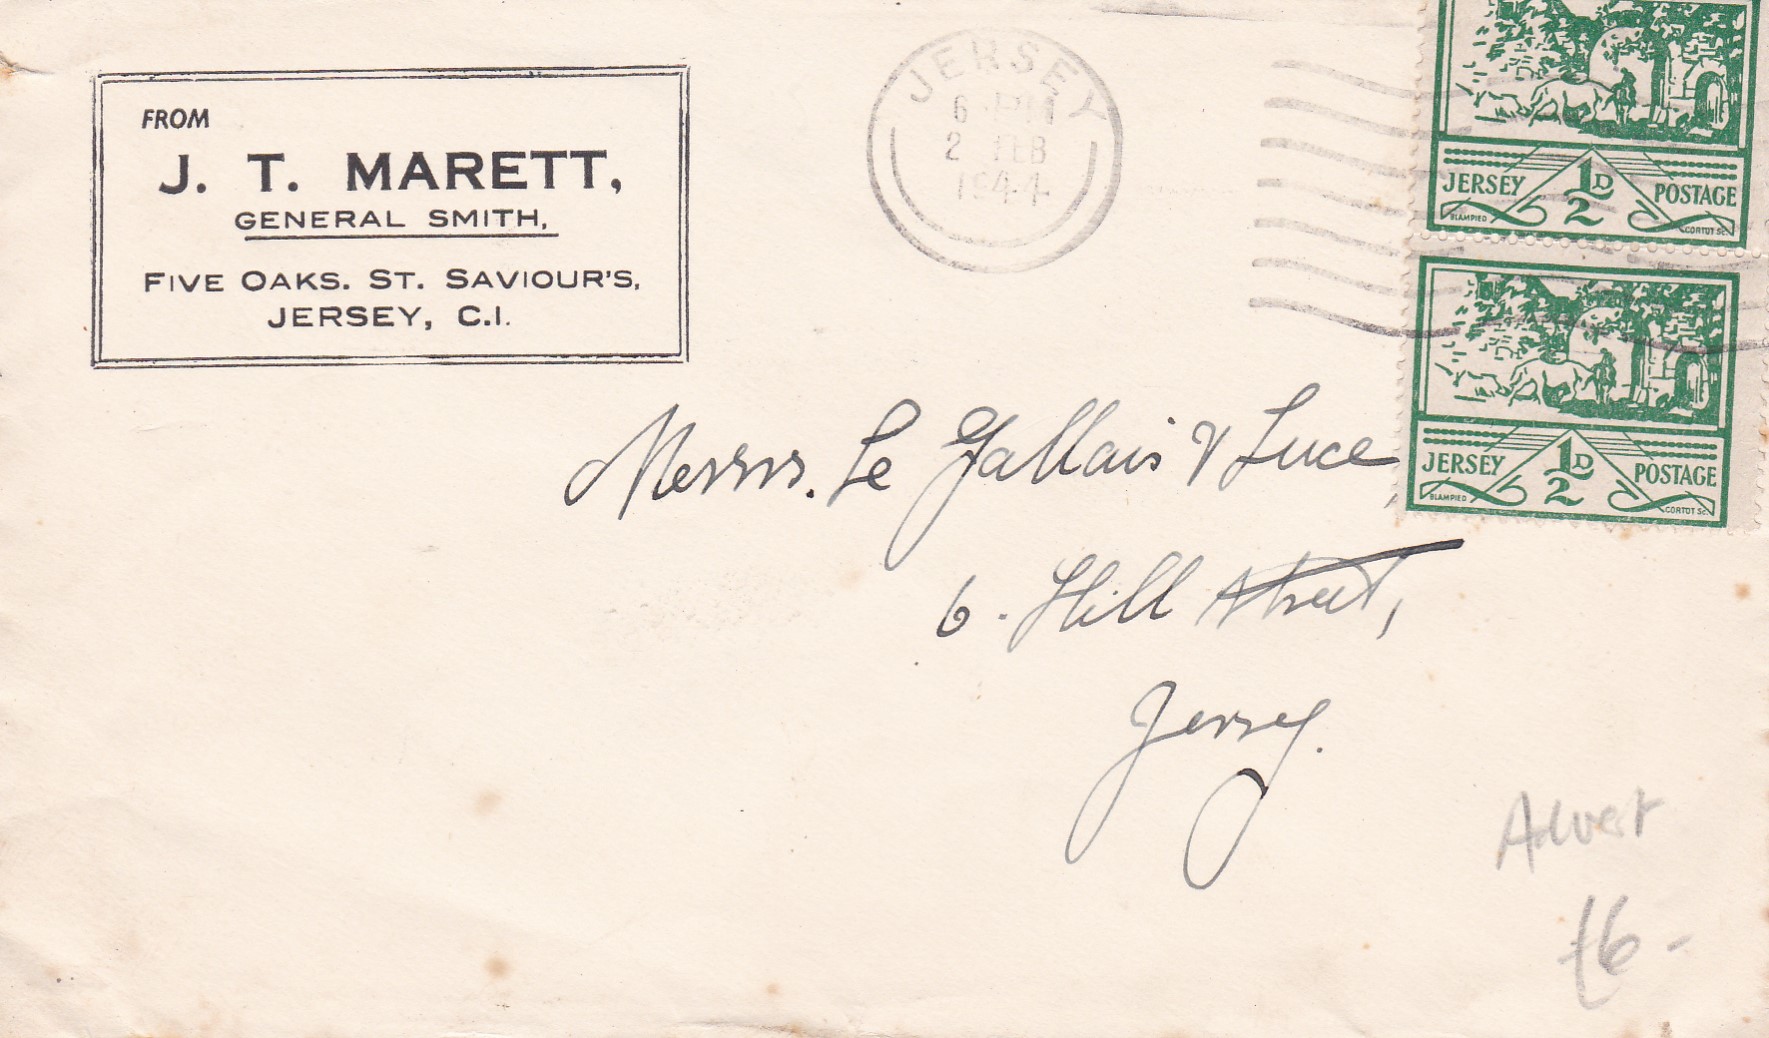 FROM
J. T. MARETT,
GENERAL SMITH,
FIVE OAKS. ST. SAVIOUR'S,
JERSEY, C.I.
JERSEY
6 PM
2 FEB
1944
JERSEY ½D POSTAGE
BLAMPIED CORTOT Sc.
JERSEY ½D POSTAGE
BLAMPIED CORTOT Sc.
Messrs. Le Gallais & Luce,
6. Hill Street,
Jersey.
Advert
£6-